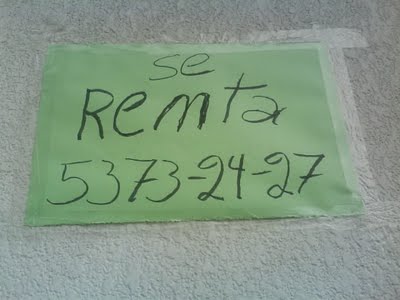 se
Remta
5373-24-27